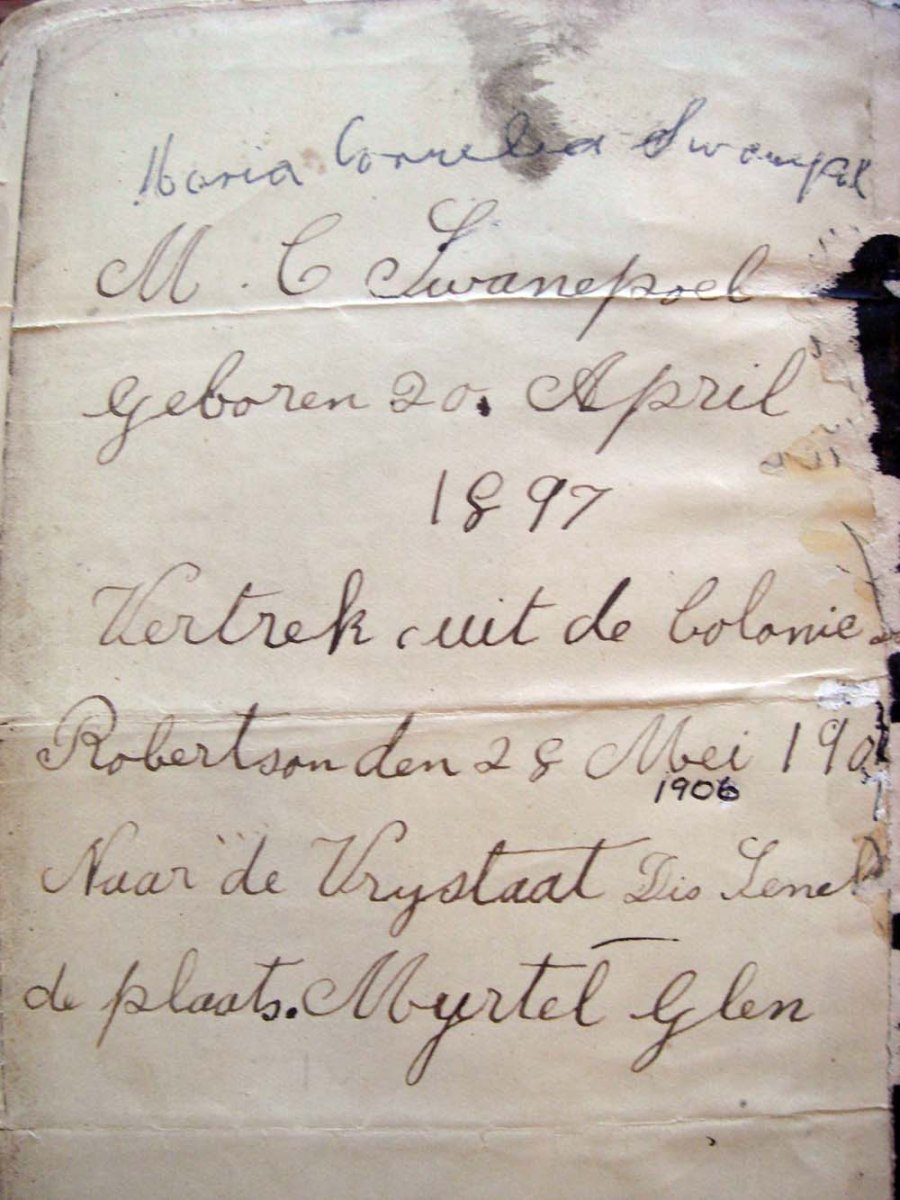 Maria Cornelia Swanepoel
M. C Swanepoel
geboren 20. April
1897
Vertrek uit de Colonie
Robertson den 28 Mei 190
1906
Naar de Vrystaat Dis Senek
de plaats. Myrtel Glen